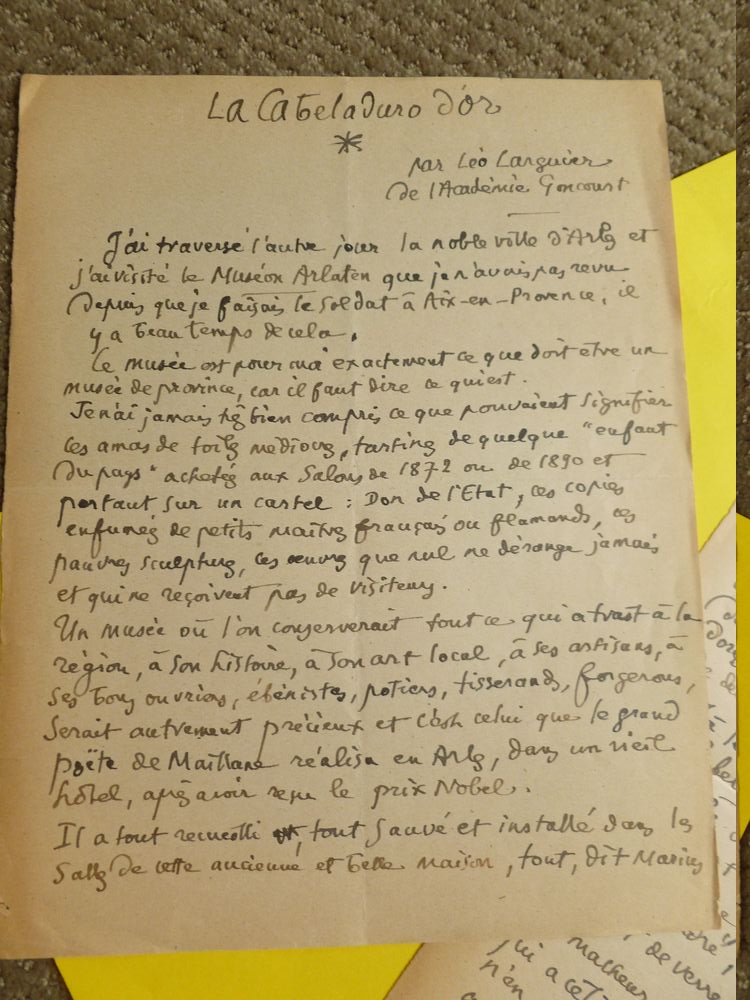 La Cabeladuro d'or
*
par Léo Larguier
de l'Académie Goncourt
J'ai traversé l'autre jour la noble ville d'Arles et
j'ai visité le Muséon Arlaten que je n'avais pas revu
depuis que je faisais le soldat à Aix-en-Provence, il
y a beau temps de cela.
Ce musée est pour moi exactement ce que doit être un
musée de province, car il faut dire ce qui est.
Je n'ai jamais très bien compris ce que pouvaient signifier
ces amas de toiles médiocres, tartines de quelque "enfant
du pays" achetées aux Salons de 1872 ou de 1890 et
portant sur un cartel : Don de l'Etat, ces copies
enfumées de petits maîtres français ou flamands, ces
pauvres sculptures, ces œuvres que nul ne dérange jamais
et qui ne reçoivent pas de visiteurs.
Un musée où l'on conserverait tout ce qui a trait à la
région, à son histoire, à son art local, à ses artisans, à
ses bons ouvriers, ébénistes, potiers, tisserands, forgerons,
serait autrement précieux et c'est celui que le grand
poëte de Maillane réalisa en Arles, dans un vieil
hôtel, après avoir reçu le prix Nobel.
Il a tout recueilli, tout sauvé et installé dans les
salles de cette ancienne et belle maison, tout, dit Marius
qui a cet
de verre
n'en